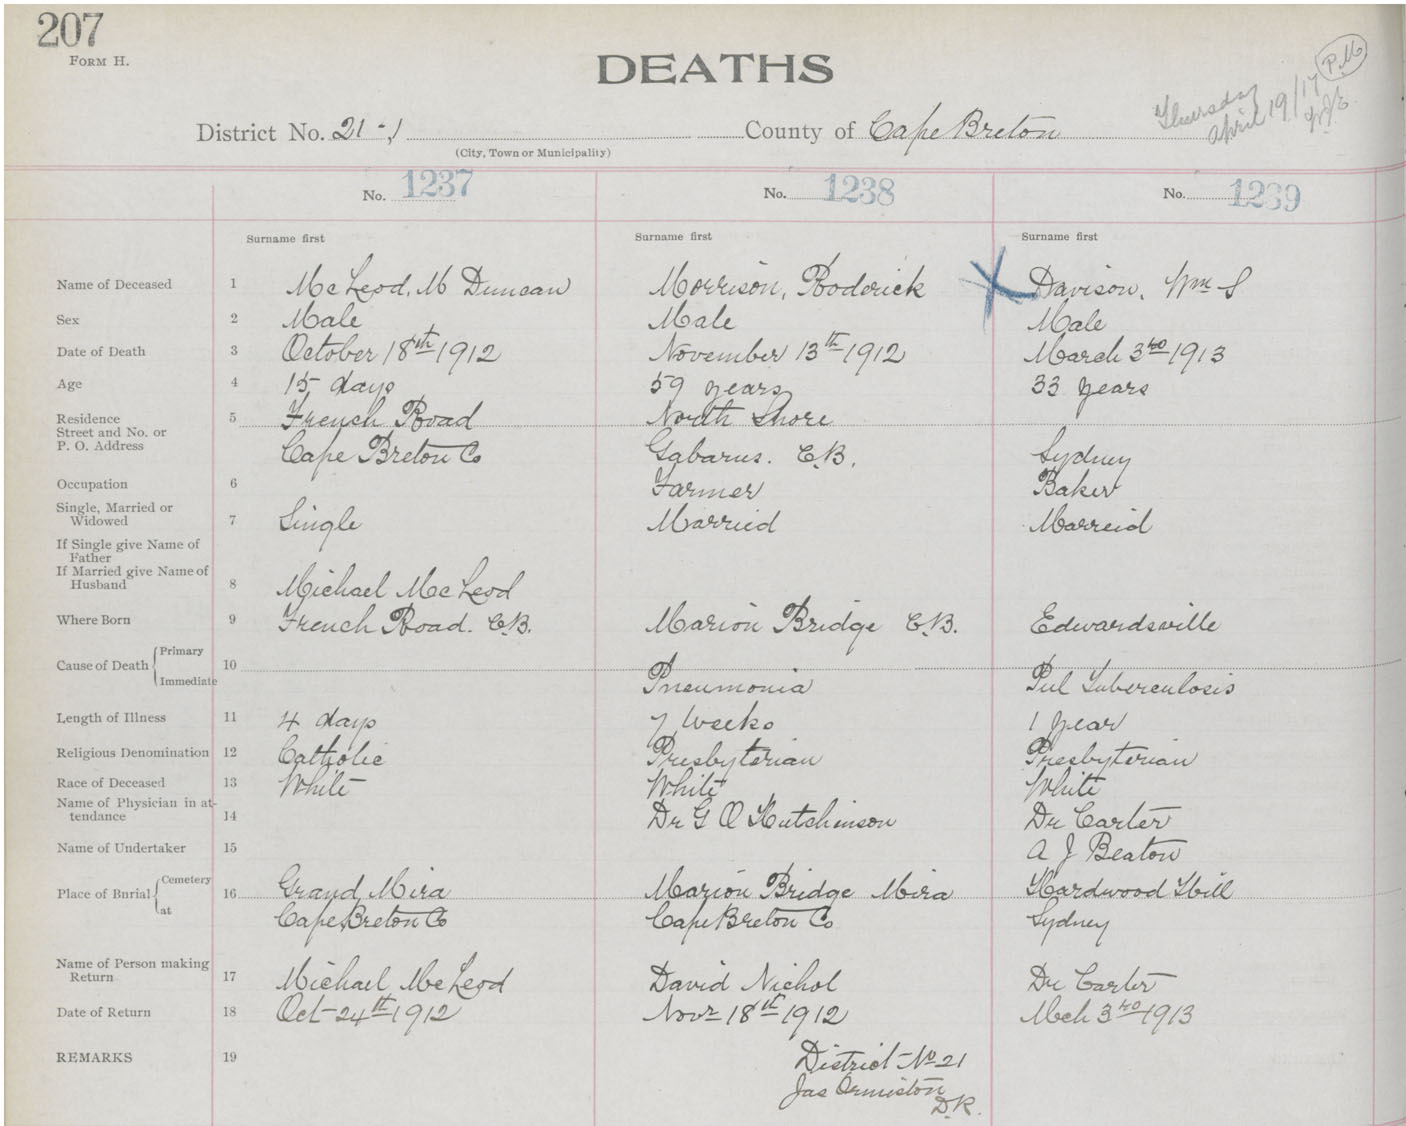 207
FORM H.
DEATHS
Thursday
April 19/17
P.M
District No. 21-1 County of Cape Breton
(City, Town or Municipality)
No. 1237 No. 1238 No. 1239
Surname first Surname first Surname first
Name of Deceased 1 McLeod, M Duncan Morrison, Roderick X Davison, Wm S
Sex 2 Male Male Male
Date of Death 3 October 18th 1912 November 13th 1912 March 3rd 1913
Age 4 15 days 59 years 33 years
Residence 5 French Road North Shore
Street and No. or
P. O. Address Cape Breton Co Gabarus. C.B. Sydney
Occupation 6 Farmer Baker
Single, Married or
Widowed 7 Single Married Marreid
If Single give Name of
Father
If Married give Name of
Husband 8 Michael McLeod
Where Born 9 French Road. C.B. Marion Bridge C.B. Edwardsville
Cause of Death 10 Primary
Immediate Pneumonia Pul Tuberculosis
Length of Illness 11 4 days 7 weeks 1 year
Religious Denomination 12 Catholic Presbyterian Presbyterian
Race of Deceased 13 White White White
Name of Physician in at-
tendance 14 Dr G O Hutchinson Dr Carter
Name of Undertaker 15 A J Beaton
Place of Bnrial Cemetery 16 Grand Mira Marion Bridge Mira Hardwood Hill
at Cape Breton Co Cape Breton Co Sydney
Name of Person making
Return 17 Michael McLeod David Nichol Dr Carter
Date of Return 18 Oct 24th 1912 Novr 18th 1912 Mch 3rd 1913
REMARKS 19 District No 21
Jas Ormiston
D.R.